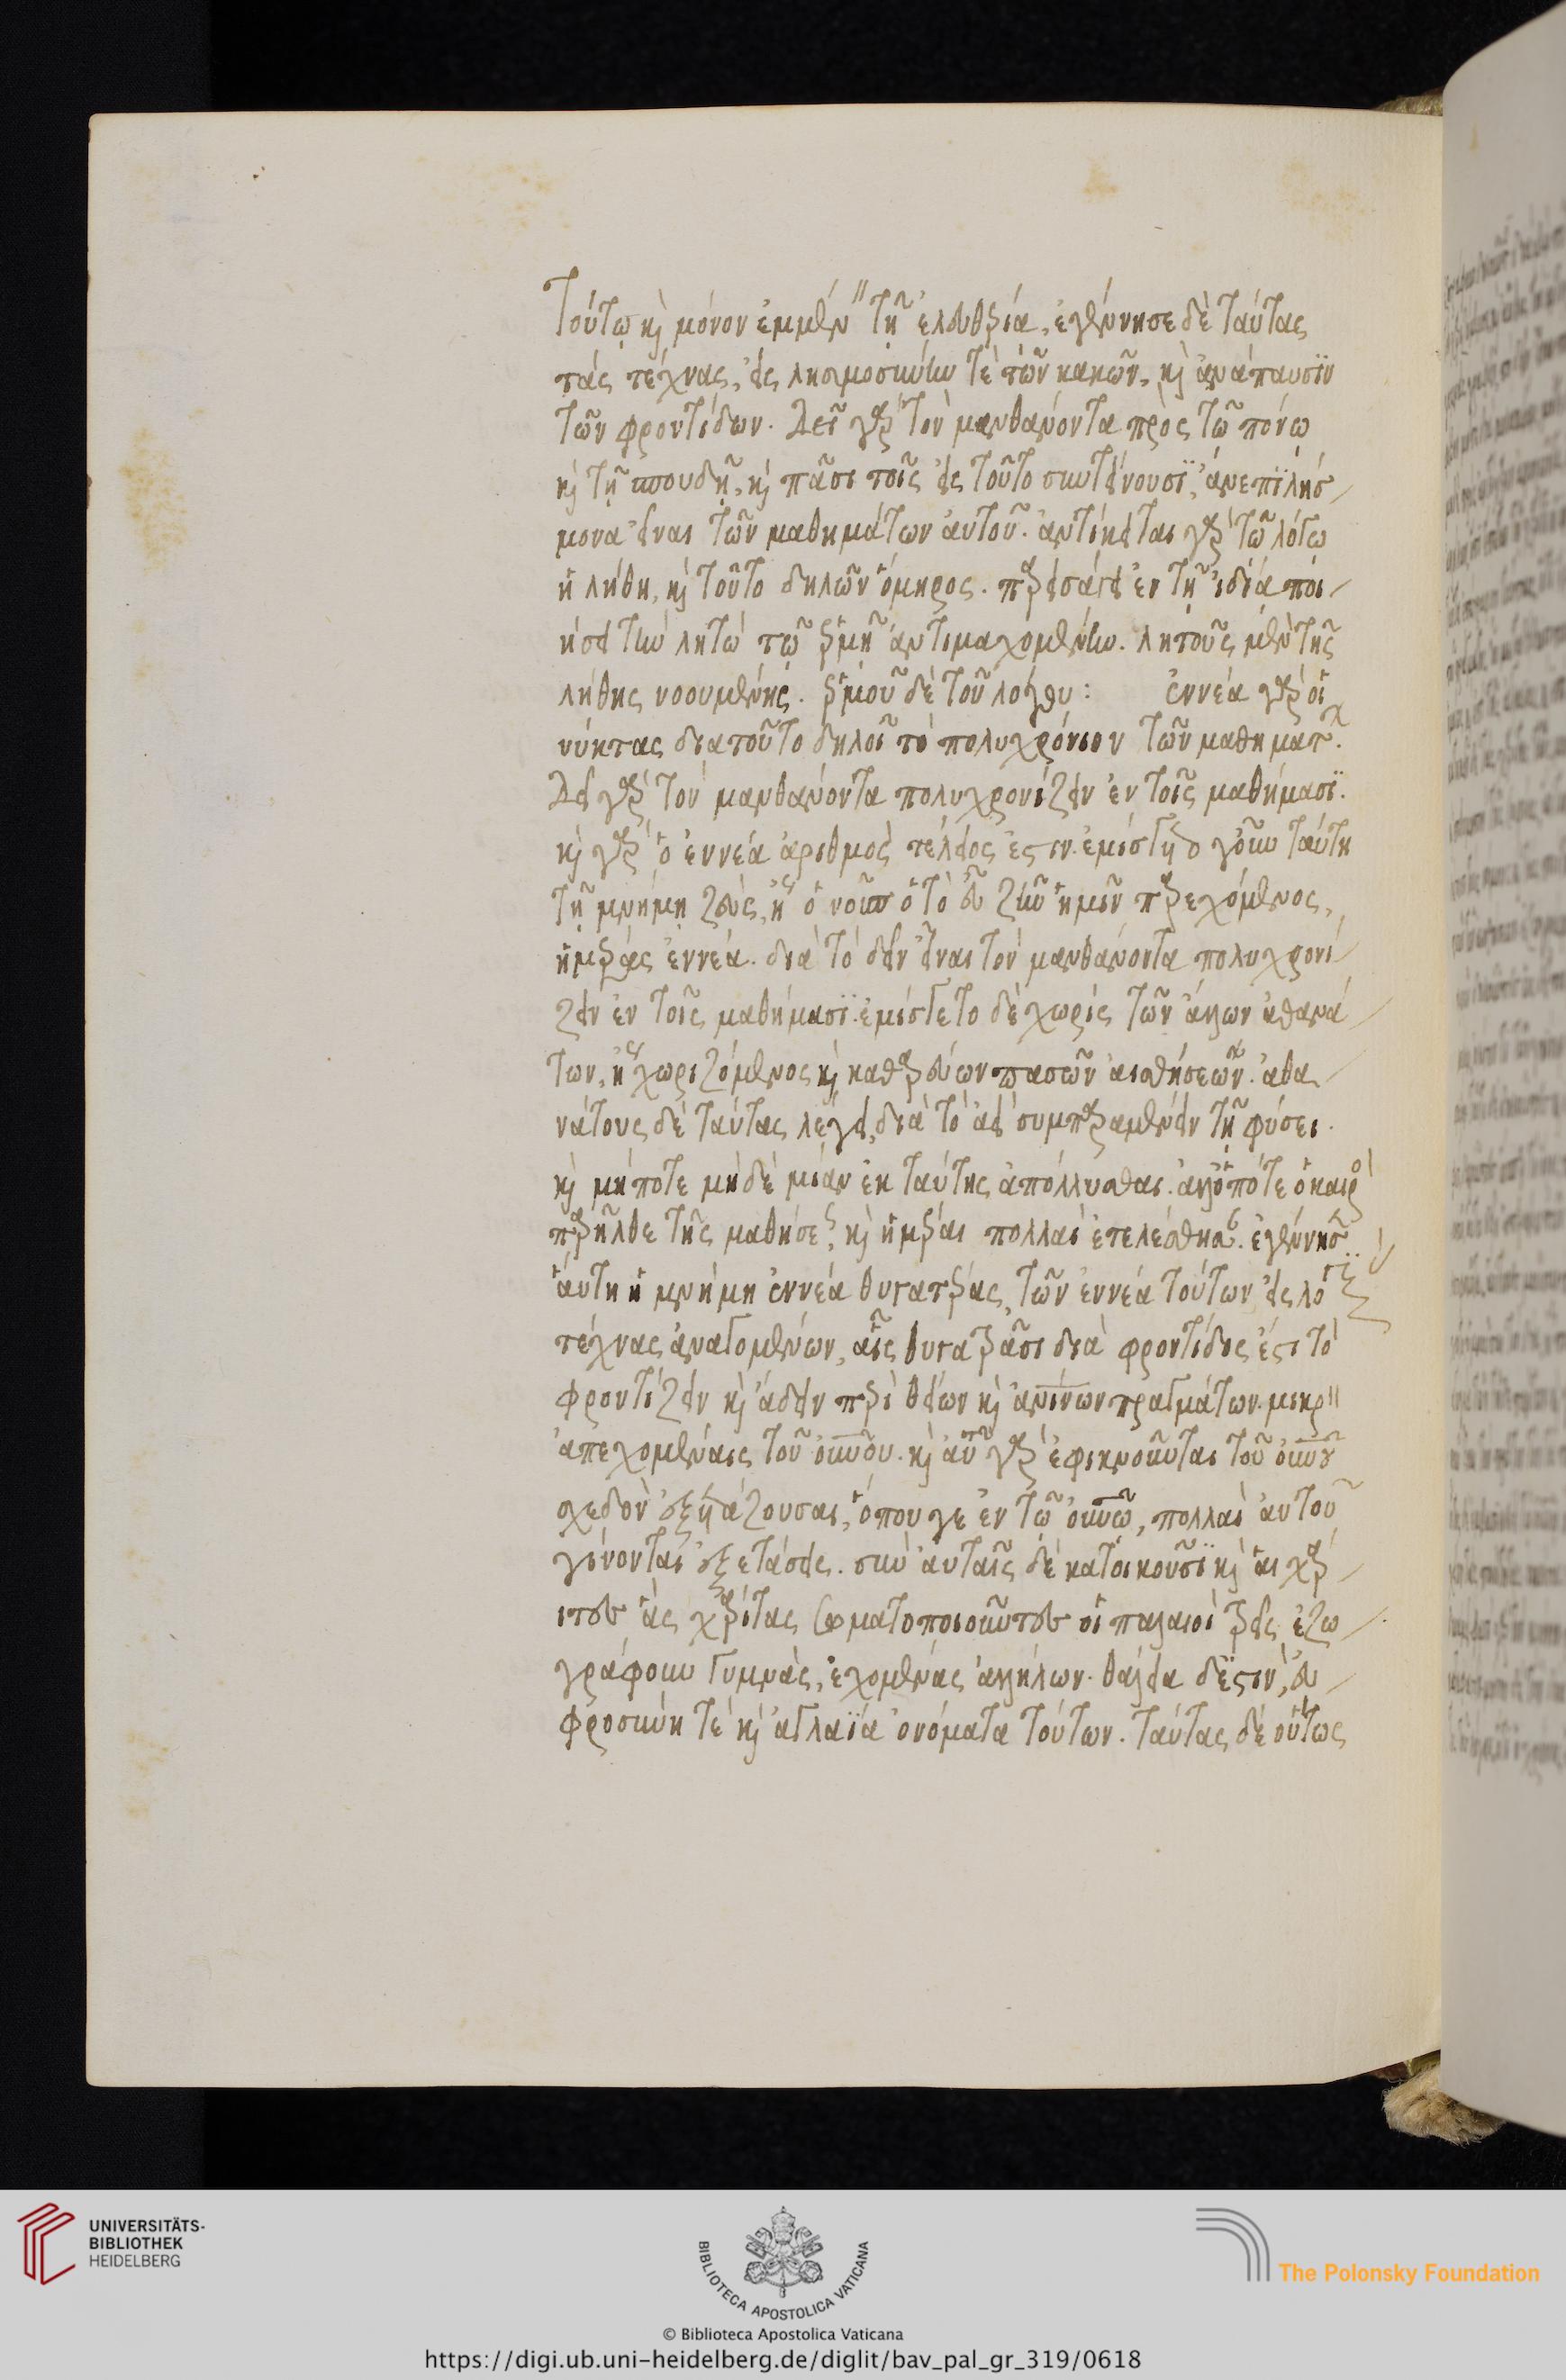 τούτω καὶ μόνον ἐμμένων τῇ ἐλευθερία, ἐγέννησε δὲ ταύτας
τὰς τέχνας, εἰς λησμοσύνην τὲ τῶν κακῶν, καὶ ἀνάπαυσϊν
τῶν φροντίδων. Δεῖ γὰρ τὸν μανθάνοντα πρὸς τῶ πόνω
καὶ τῇ σπουδῇ, καὶ πᾶσι τοῖς εἰς τοῦτο συντείνουσϊ, ἀνεπϊλήσ
μονα εἶναι τῶν μαθημάτων αὐτοῦ. ἀντίκειται γὰρ τῶ λόγω
ἡ λήθη, καὶ τοῦτο δηλῶν ὅμηρος. παρεισάγει ἐν τῇ ἰδία ποι
ήσει τὴν λητὼ τῷ ἑρμῇ ἀντιμαχομένην. λητοῦς μὲν τῆς
λήθης νοουμένης. ἑρμοῦ δὲ τοῦ λόγου: ἐννέα γὰρ οἱ
νύκτας διατοῦτο δηλοῖ τὸ πολυχρόνιον τῶν μαθημάτ.
Δεῖ γὰρ τὸν μανθάνοντα πολυχρονίζειν ἐν τοῖς μαθήμασϊ.
καὶ γὰρ ὁ ἐννέα ἀριθμὸς τέλειός ἐστιν. ἐμίσγετο γοῦν ταύτη
τῇ μνήμῃ ζεὺς, ὁ νοῦς ὁ τὸ εὖ ζῆν ἡμῖν παρεχόμενος,
ἡμέρας ἐννέα. διὰ τὸ δεῖν εἶναι τὸν μανθάνοντα πολυχρονί
ζειν ἐν τοῖς μαθήμασϊ. ἐμίσγετο δὲ χωρὶς τῶν ἄλλων ἀθανά
των, χωριζόμενος καὶ καθαρεύων πασῶν αἰσθήσεων. ἀθα
νάτους δὲ ταύτας λέγει, διὰ τὸ ἀεὶ συμπαραμένειν τῇ φύσει.
καὶ μήποτε μηδὲ μίαν ἐκ ταύτης ἀπόλλυσθαι. ἀλλ' ὁπότε ὁ καιρὸ
παρῆλθε τῆς μαθήσε, καὶ ἡμέραι πολλαὶ ἐτελέσθησαν. ἐγέννησ
αὕτη ἡ μνήμη ἐννέα θυγατέρας, τῶν ἐννέα τούτων εἰς λο
τέχνας ἀναγομένων, αἷς θυγατράσι διὰ φροντίδος ἐστὶ τὸ
φροντίζειν καὶ ἄδειν περὶ θείων καὶ ἀνίνων πραγμάτων. μικρ
ἀπεχομέναις τοῦ οὐνοῦ. καὶ αὗται γὰρ ἐφικνοῦνται τοῦ οὐνοῦ
σχεδὸν ἐξετάζουσαι, ὅπου γε ἐν τῶ οὐνῶ, πολλαὶ αὐτοῦ
γίνονται ἐξετάσεις. σὺν αὐταῖς δὲ κατοικοῦσϊ καὶ αἱ χάρ
ιτες ἃς χάριτας σωματοποιοῦντες οἱ παλαιοὶ τρεῖς ἐζω
γράφουν γυμνὰς, ἐχομένας ἀλλήλων. θάλεια δέ ἐστιν, εὐ
φροσύνη τὲ καὶ ἀγλαϊα ὀνόματα τούτων. ταύτας δὲ οὕτως
UNIVERSITÄTS-
BIBLIOTHEK
HEIDELBERG
BIBLIOTECA APOSTOLICA VATICANA
The Polonsky Foundation
© Biblioteca Apostolica Vaticana
https://digi.ub.uni-heidelberg.de/diglit/bav_pal_gr_319/0618